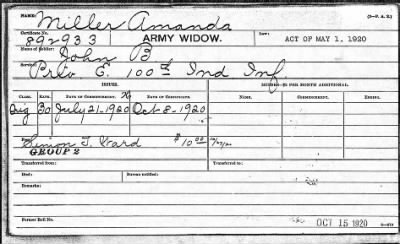 NAME: Miller Amanda (3-P. A. B.)
Certificate No. 892933 ARMY WIDOW. Law: ACT OF MAY 1, 1920
Name of Soldier: John B
Service: Prtv E. 100th Ind Inf
ISSUES.
CLASS. RATE. DATE OF COMMENCEMENT. DATE OF CERTIFICATE. NAME. COMMENCEMENT. ENDING.
Orig 30 July 21-1920 Oct 8-1920
Simon T. Ward $10.00
GROUP 2
Transferred from: Transferred to:
Died: Bureau notified:
Remarks:
Former Roll No. OCT 15 1920